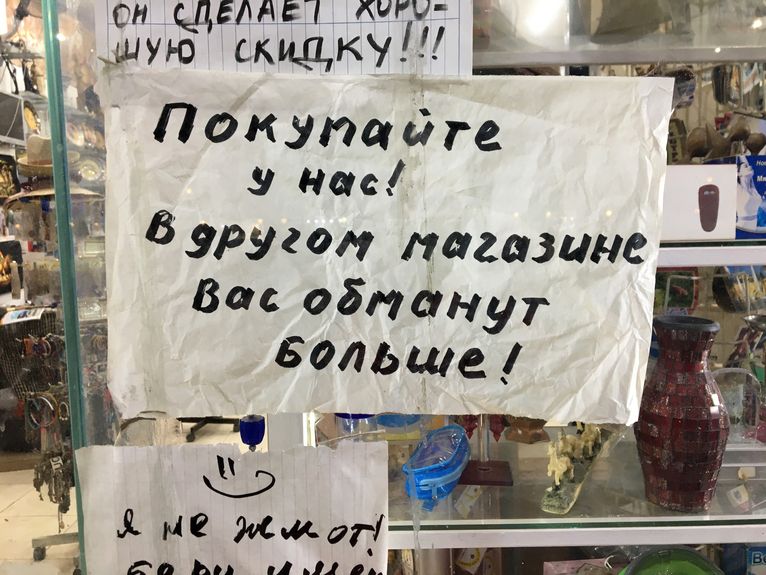 ОН СДЕЛАЕТ ХОРО-
ШУЮ СКИДКУ!!!
Покупайте
у нас!
В другом магазине
Вас обманут
больше!
Я не жмот!